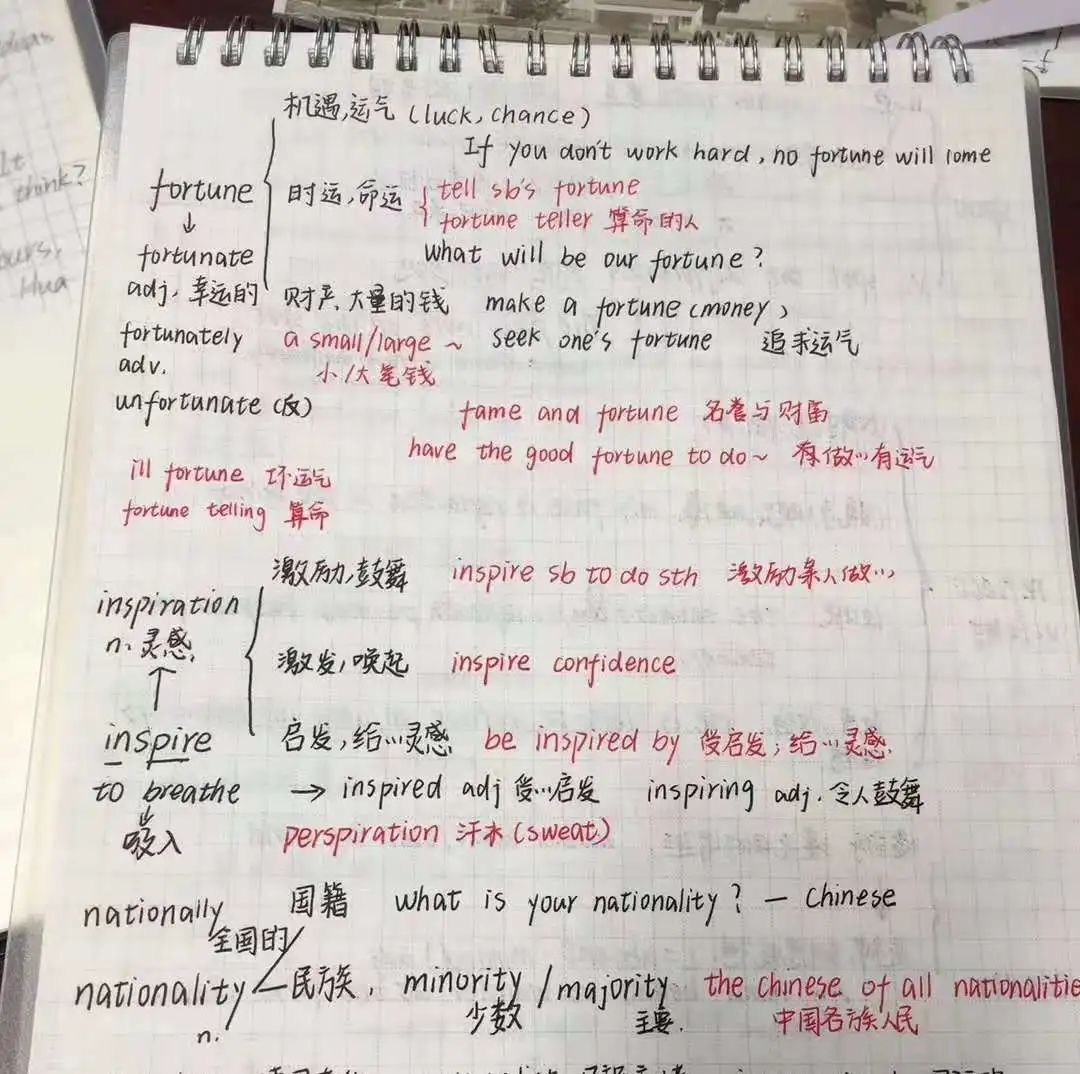 机遇,运气 (luck, chance)
If you don't work hard, no fortune will come
fortune 时运,命运 tell sb's fortune
fortune teller 算命的人
↓
fortunate What will be our fortune?
adj. 幸运的 财产、大量的钱 make a fortune (money)
fortunately a small/large ~ seek one's fortune 追求运气
adv. 小/大笔钱
unfortunate (反) fame and fortune 名誉与财富
have the good fortune to do ~ 有做…有运气
ill fortune 坏运气
fortune telling 算命
激励,鼓舞 inspire sb to do sth 激励某人做…
inspiration
n. 灵感
激发,唤起 inspire confidence
↑
inspire 启发,给…灵感 be inspired by 受启发;给…灵感
to breathe → inspired adj 受…启发 inspiring adj. 令人鼓舞
↓
吸入 perspiration 汗水 (sweat)
nationally 国籍 what is your nationality? — Chinese
全国的
nationality 民族, minority / majority the chinese of all nationalitie
n. 少数 主要. 中国各族人民
It
think?
ours,
Hua